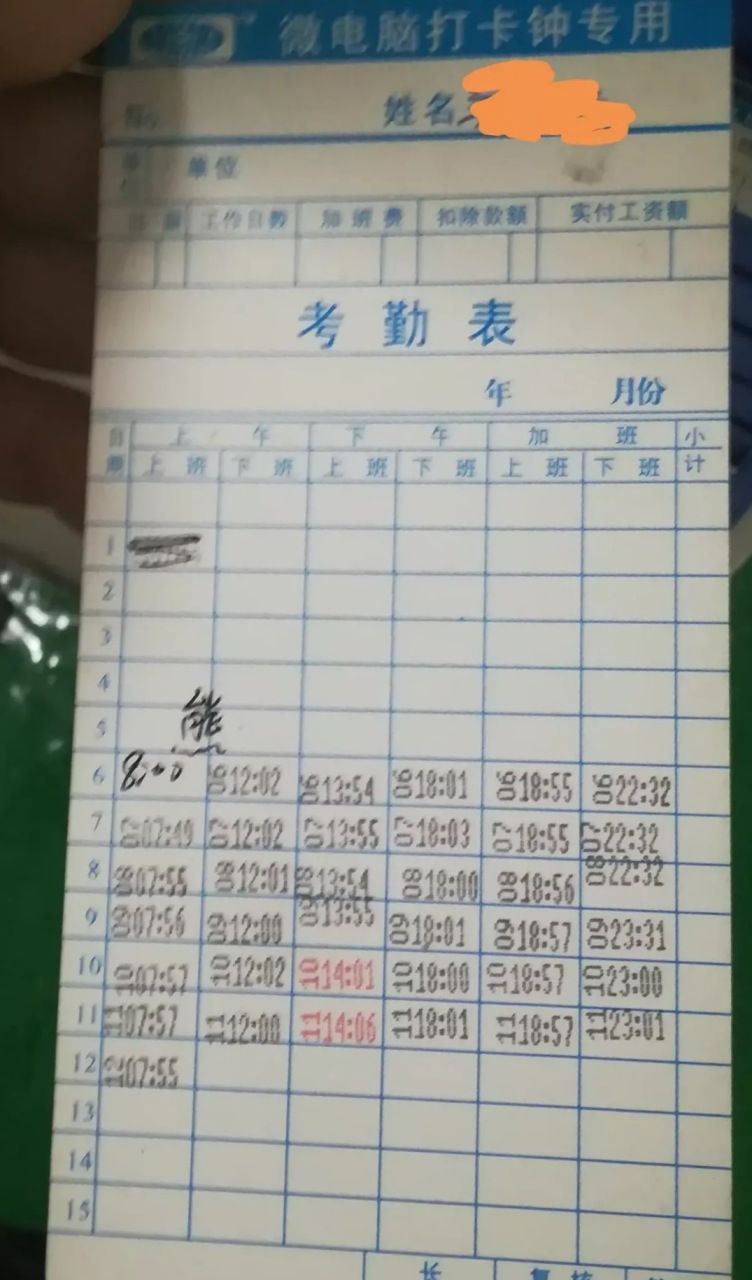 微电脑打卡钟专用
姓名
单位
工作日数 加班费 扣除款额 实付工资额
考勤表
年 月份
日期 上午 下午 加班 小计
上班 下班 上班 下班 上班 下班
1
2
3
4
熊
5
6 8:00 0612:02 0613:54 0618:01 0618:55 0622:32
7 0707:49 0712:02 0713:55 0718:03 0718:55 0722:32
8 0807:55 0812:01 0813:54 0818:00 0818:56 0822:32
9 0907:56 0912:00 0913:55 0918:01 0918:57 0923:31
10 1007:57 1012:02 1014:01 1018:00 1018:57 1023:00
11 1107:57 1112:00 1114:06 1118:01 1118:57 1123:01
12 1207:55
13
14
15
长 复核